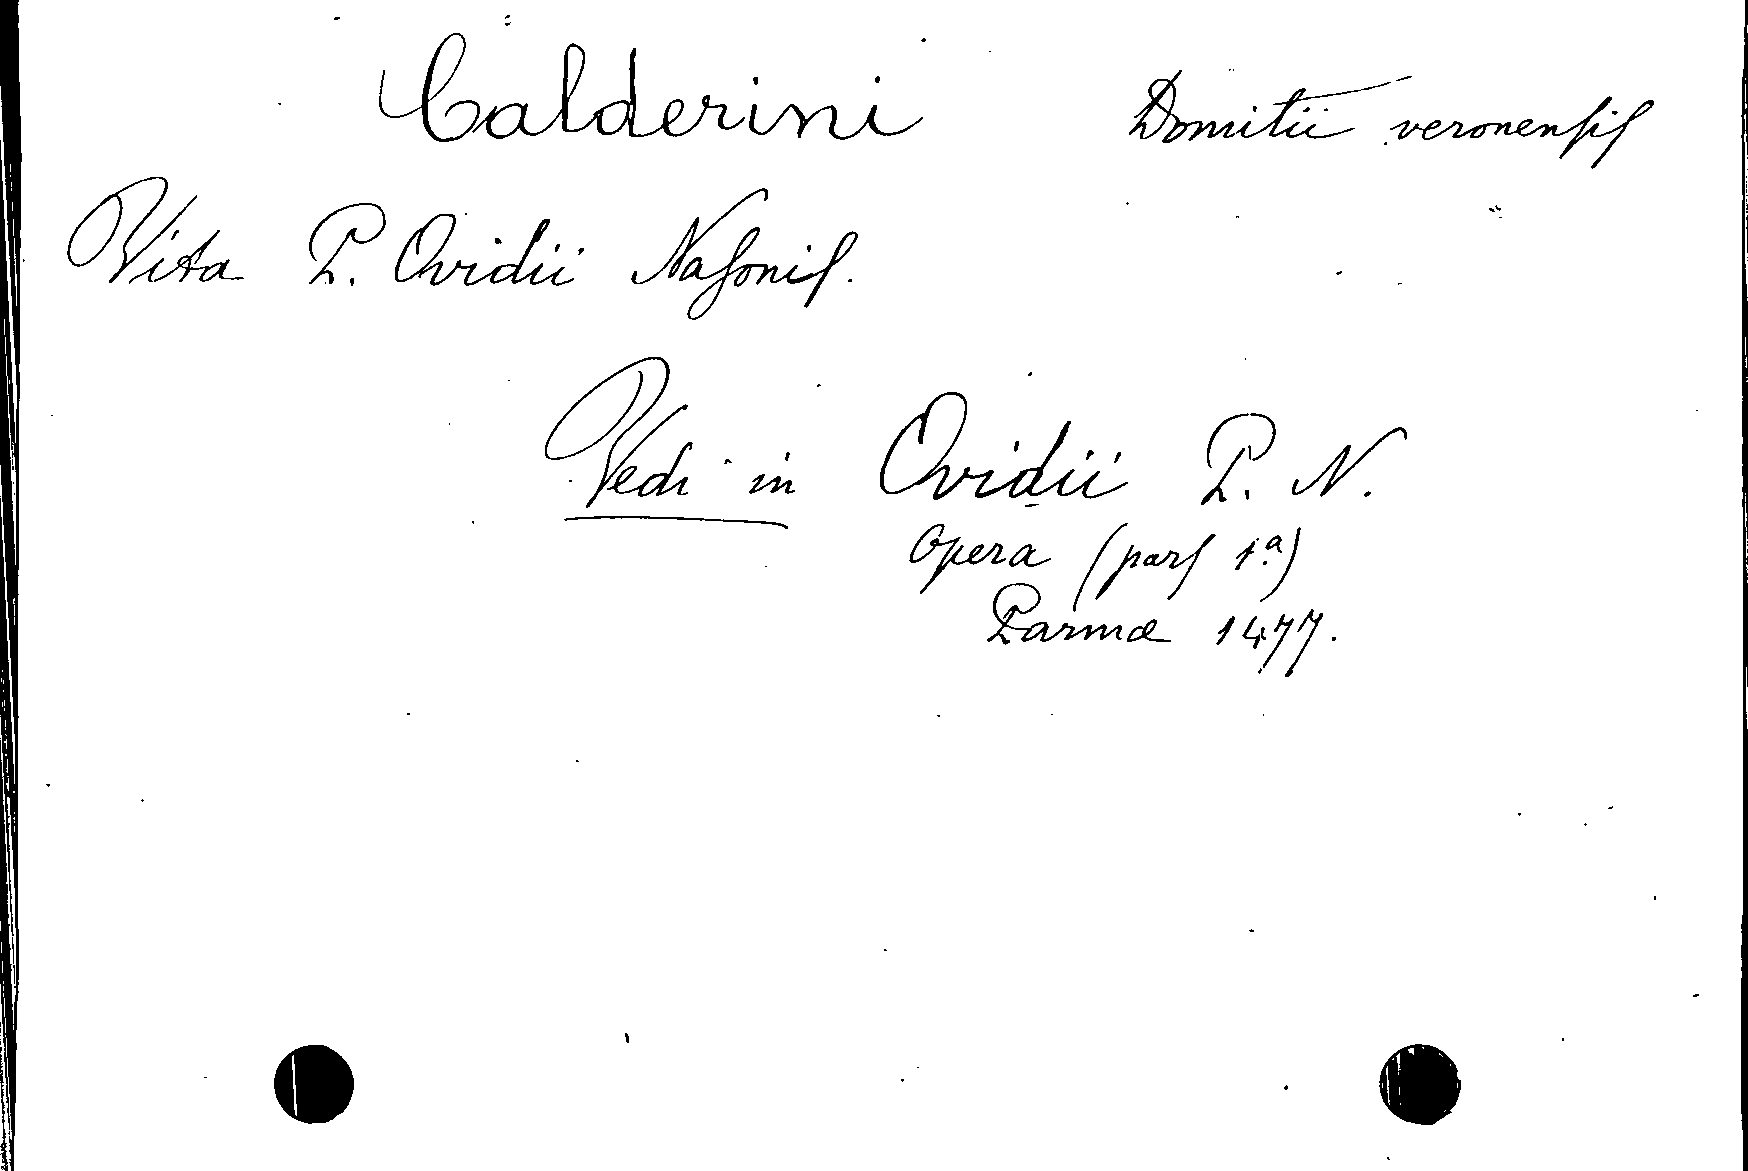 Calderini Domitii veronensis
Vita P. Ovidii Nasonis.
Vedi in Ovidii P. N.
Opera (pars 1ª)
Parmæ 1477.